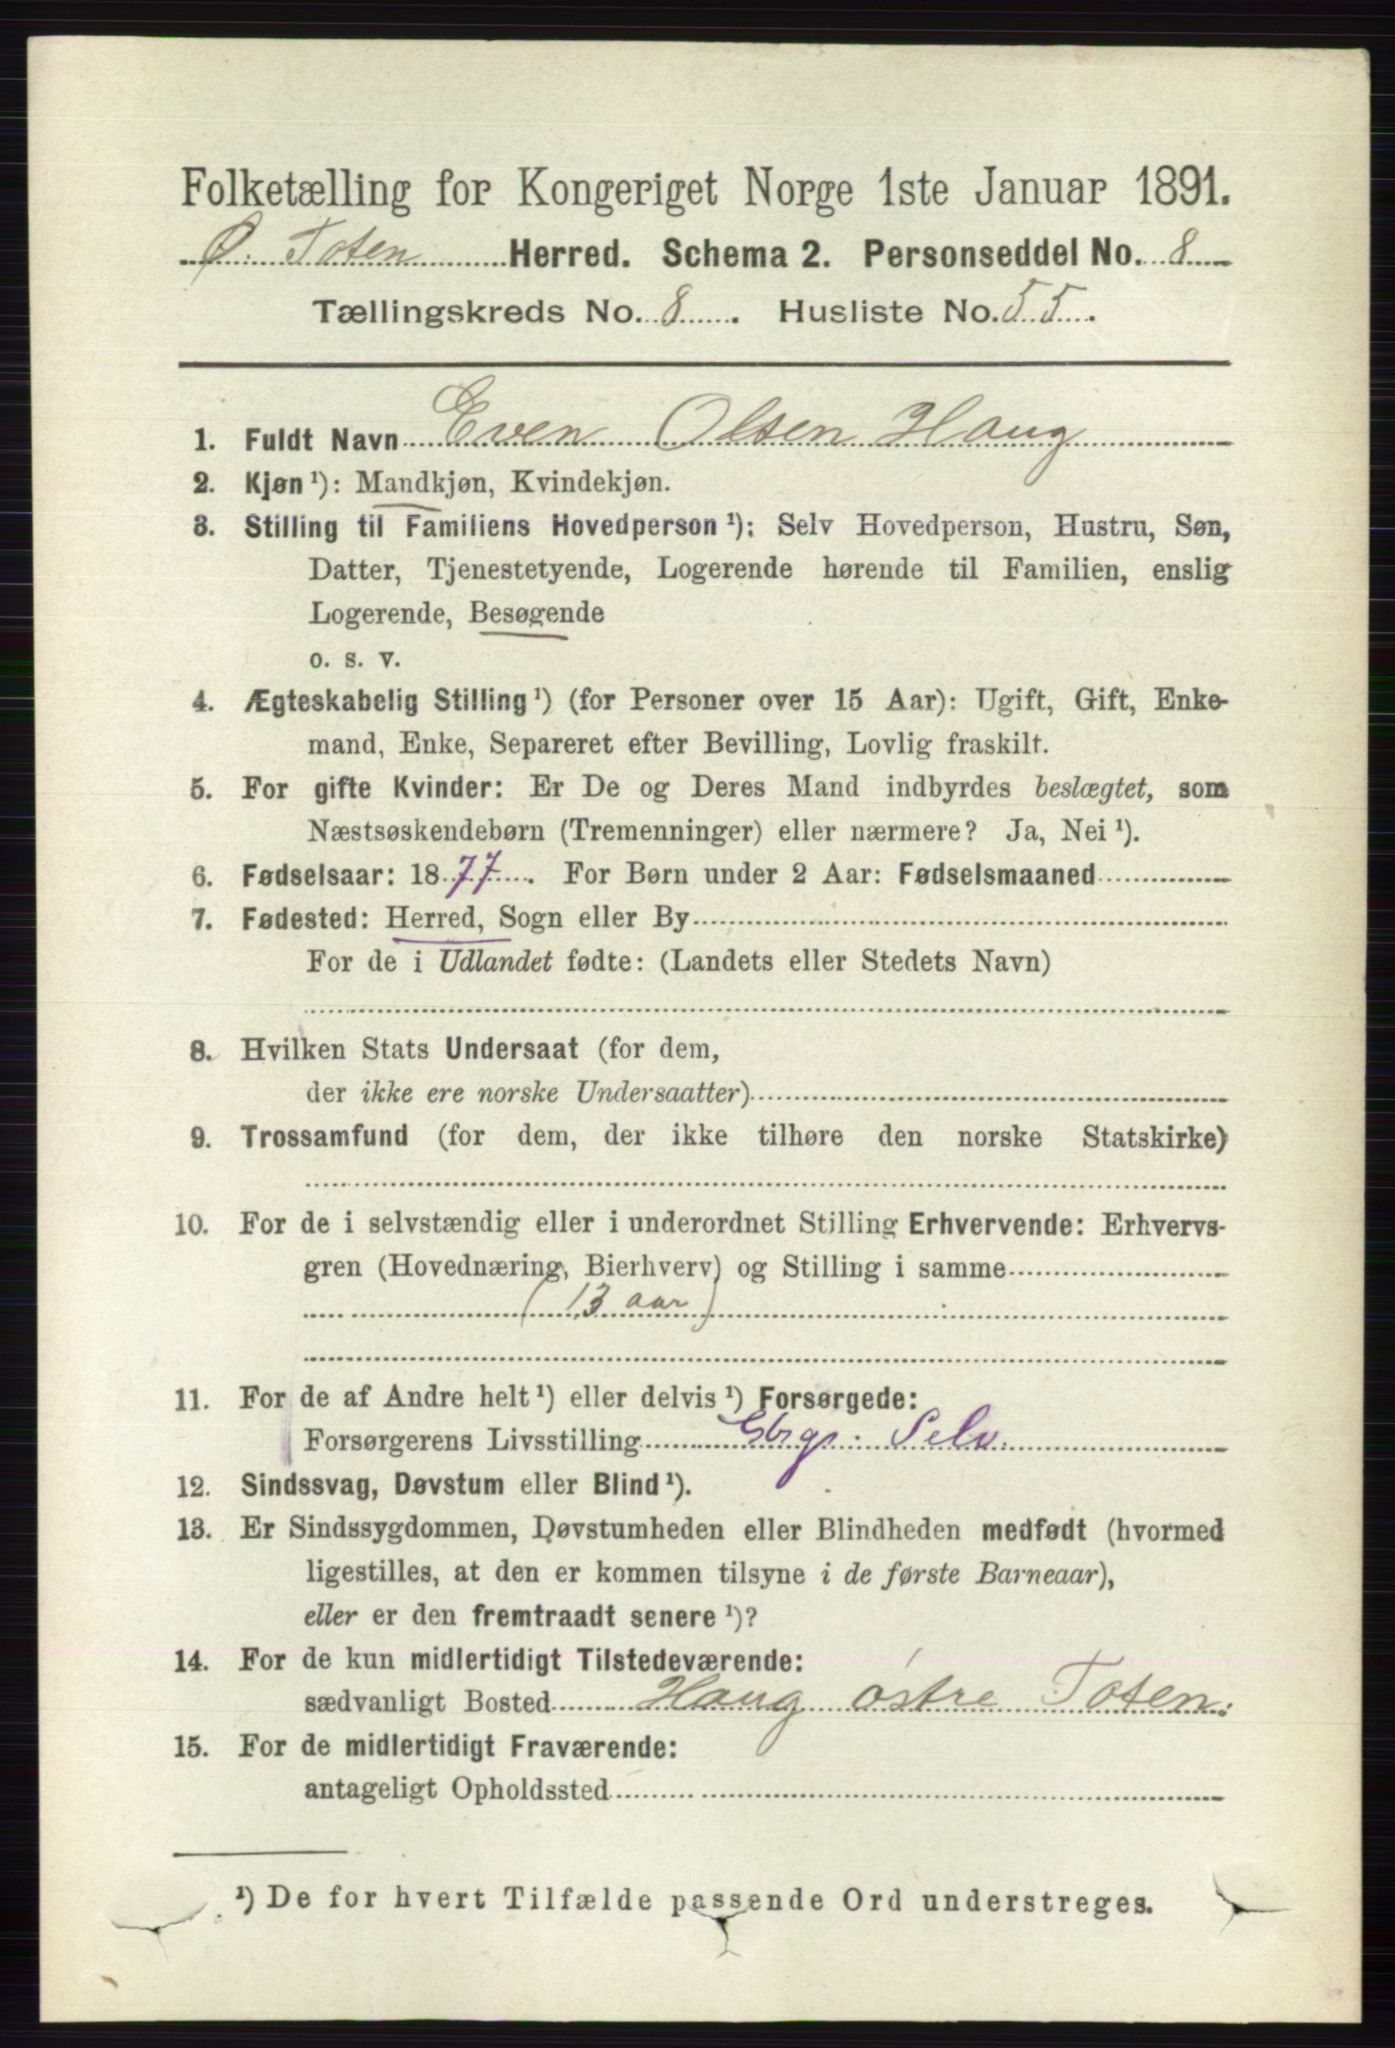 Folketælling for Kongeriget Norge 1ste Januar 1891.
Ø. Toten Herred. Schema 2. Personseddel No. 8
Tællingskreds No. 8. Husliste No. 55.
1. Fuldt Navn Even Olsen Haug
2. Kjøn ¹): Mandkjøn, Kvindekjøn.
3. Stilling til Familiens Hovedperson ¹): Selv Hovedperson, Hustru, Søn,
Datter, Tjenestetyende, Logerende hørende til Familien, enslig
Logerende, Besøgende
o. s. v.
4. Ægteskabelig Stilling ¹) (for Personer over 15 Aar): Ugift, Gift, Enke-
mand, Enke, Separeret efter Bevilling, Lovlig fraskilt.
5. For gifte Kvinder: Er De og Deres Mand indbyrdes beslægtet, som
Næstsøskendebørn (Tremenninger) eller nærmere? Ja, Nei ¹).
6. Fødselsaar: 1877. For Børn under 2 Aar: Fødselsmaaned
7. Fødested: Herred, Sogn eller By
For de i Udlandet fødte: (Landets eller Stedets Navn)
8. Hvilken Stats Undersaat (for dem,
der ikke ere norske Undersaatter)
9. Trossamfund (for dem, der ikke tilhøre den norske Statskirke)
10. For de i selvstændig eller i underordnet Stilling Erhvervende: Erhvervs-
gren (Hovednæring, Bierhverv) og Stilling i samme
(13 aar)
11. For de af Andre helt ¹) eller delvis ¹) Forsørgede:
Forsørgerens Livsstilling Gbrgr. Selv.
12. Sindssvag, Døvstum eller Blind ¹).
13. Er Sindssygdommen, Døvstumheden eller Blindheden medfødt (hvormed
ligestilles, at den er kommen tilsyne i de første Barneaar),
eller er den fremtraadt senere ¹)?
14. For de kun midlertidigt Tilstedeværende:
sædvanligt Bosted Haug østre Toten.
15. For de midlertidigt Fraværende:
antageligt Opholdssted
¹) De for hvert Tilfælde passende Ord understreges.